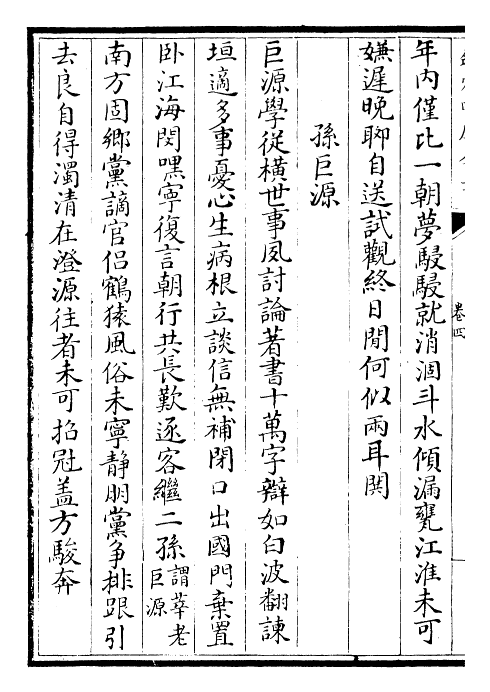 年内僅比一朝夢駸駸就消涸斗水傾漏甕江淮未可
嫌遲晚聊自送試觀終日閒何似兩耳閧
孫巨源
巨源學從橫世事夙討論著書十萬字辯如白波翻諫
垣適多事憂心生病根立談信無補閉口出國門棄置
卧江海悶嘿寧復言朝行共長歎逐客繼二孫謂莘老巨源
南方固鄉黨謫官侣鶴猿風俗未寧靜朋黨爭排跟引
去良自得濁清在澄源往者未可招冠盖方駿奔
卷四